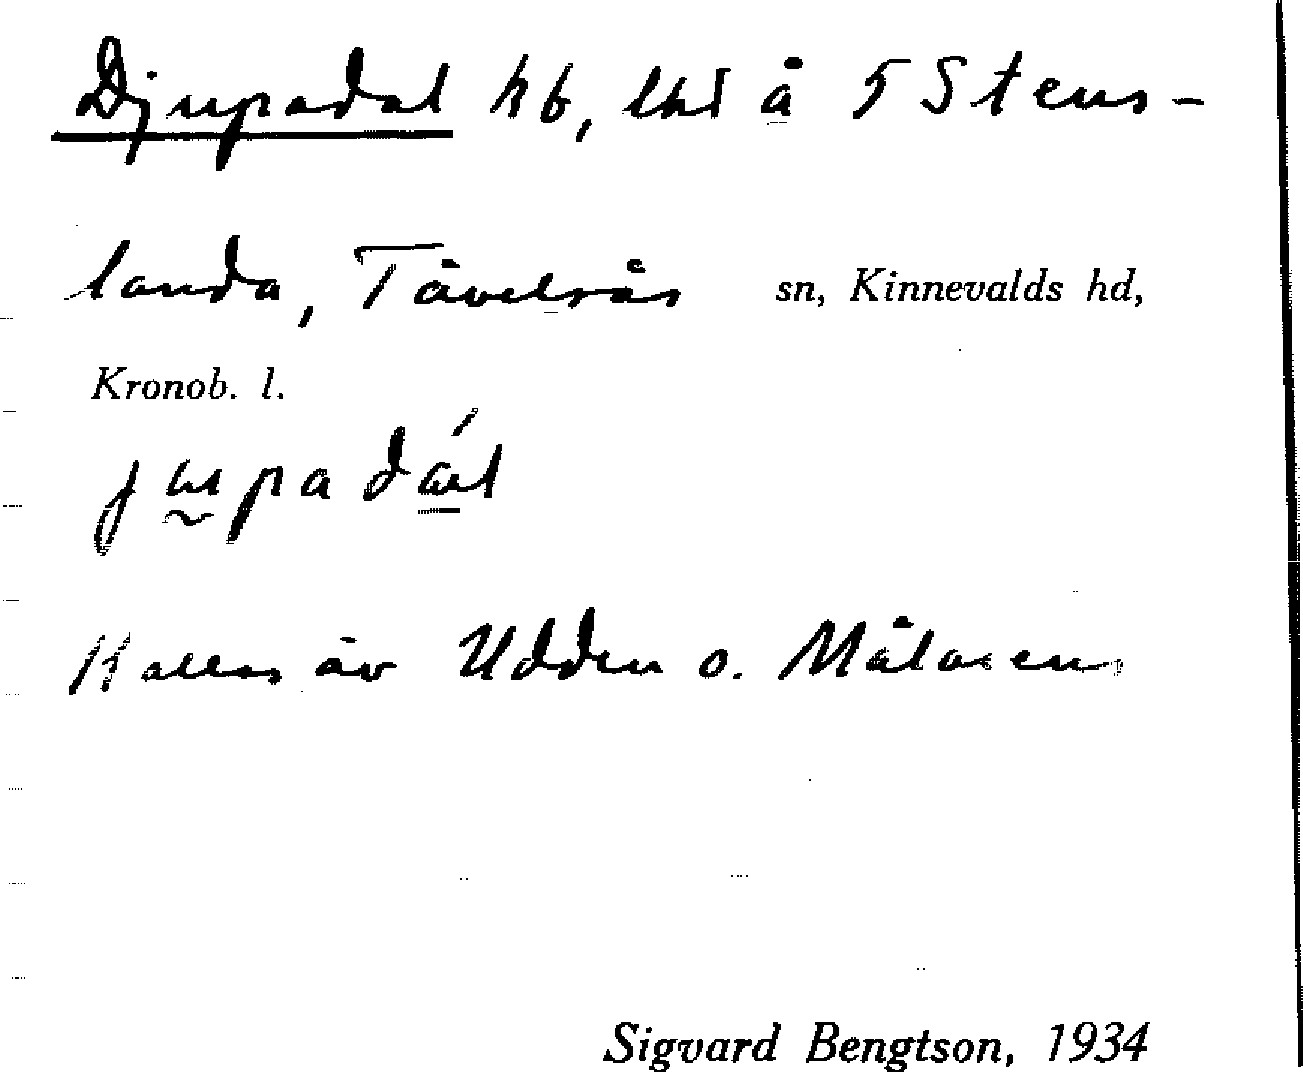 Djupadal hb, lht å 5 Stens-
landa, Tävelsås sn, Kinnevalds hd,
Kronob. l.
Kallas äv Udden o. Målaren
Sigvard Bengtson, 1934